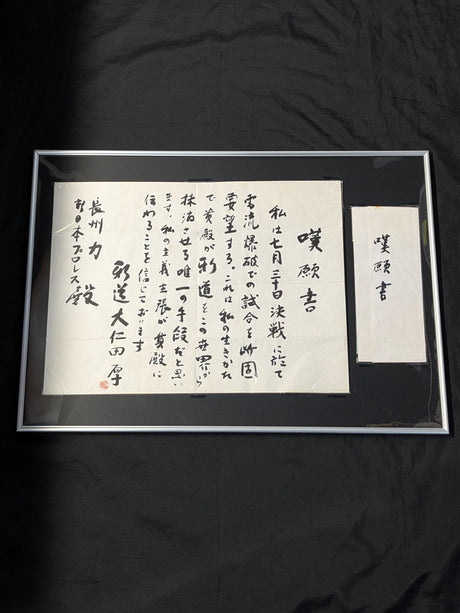 嘆願書
嘆願書
私は七月三十日決戦に於て
電流爆破での試合を断固
要望する。これは私の生きかた
で貴殿が邪道をこの世界から
抹消させる唯一の手段だと思い
ます。私の主義主張が貴殿に
伝わることを信じております
邪道 大仁田厚
長州 力 殿
新日本プロレス